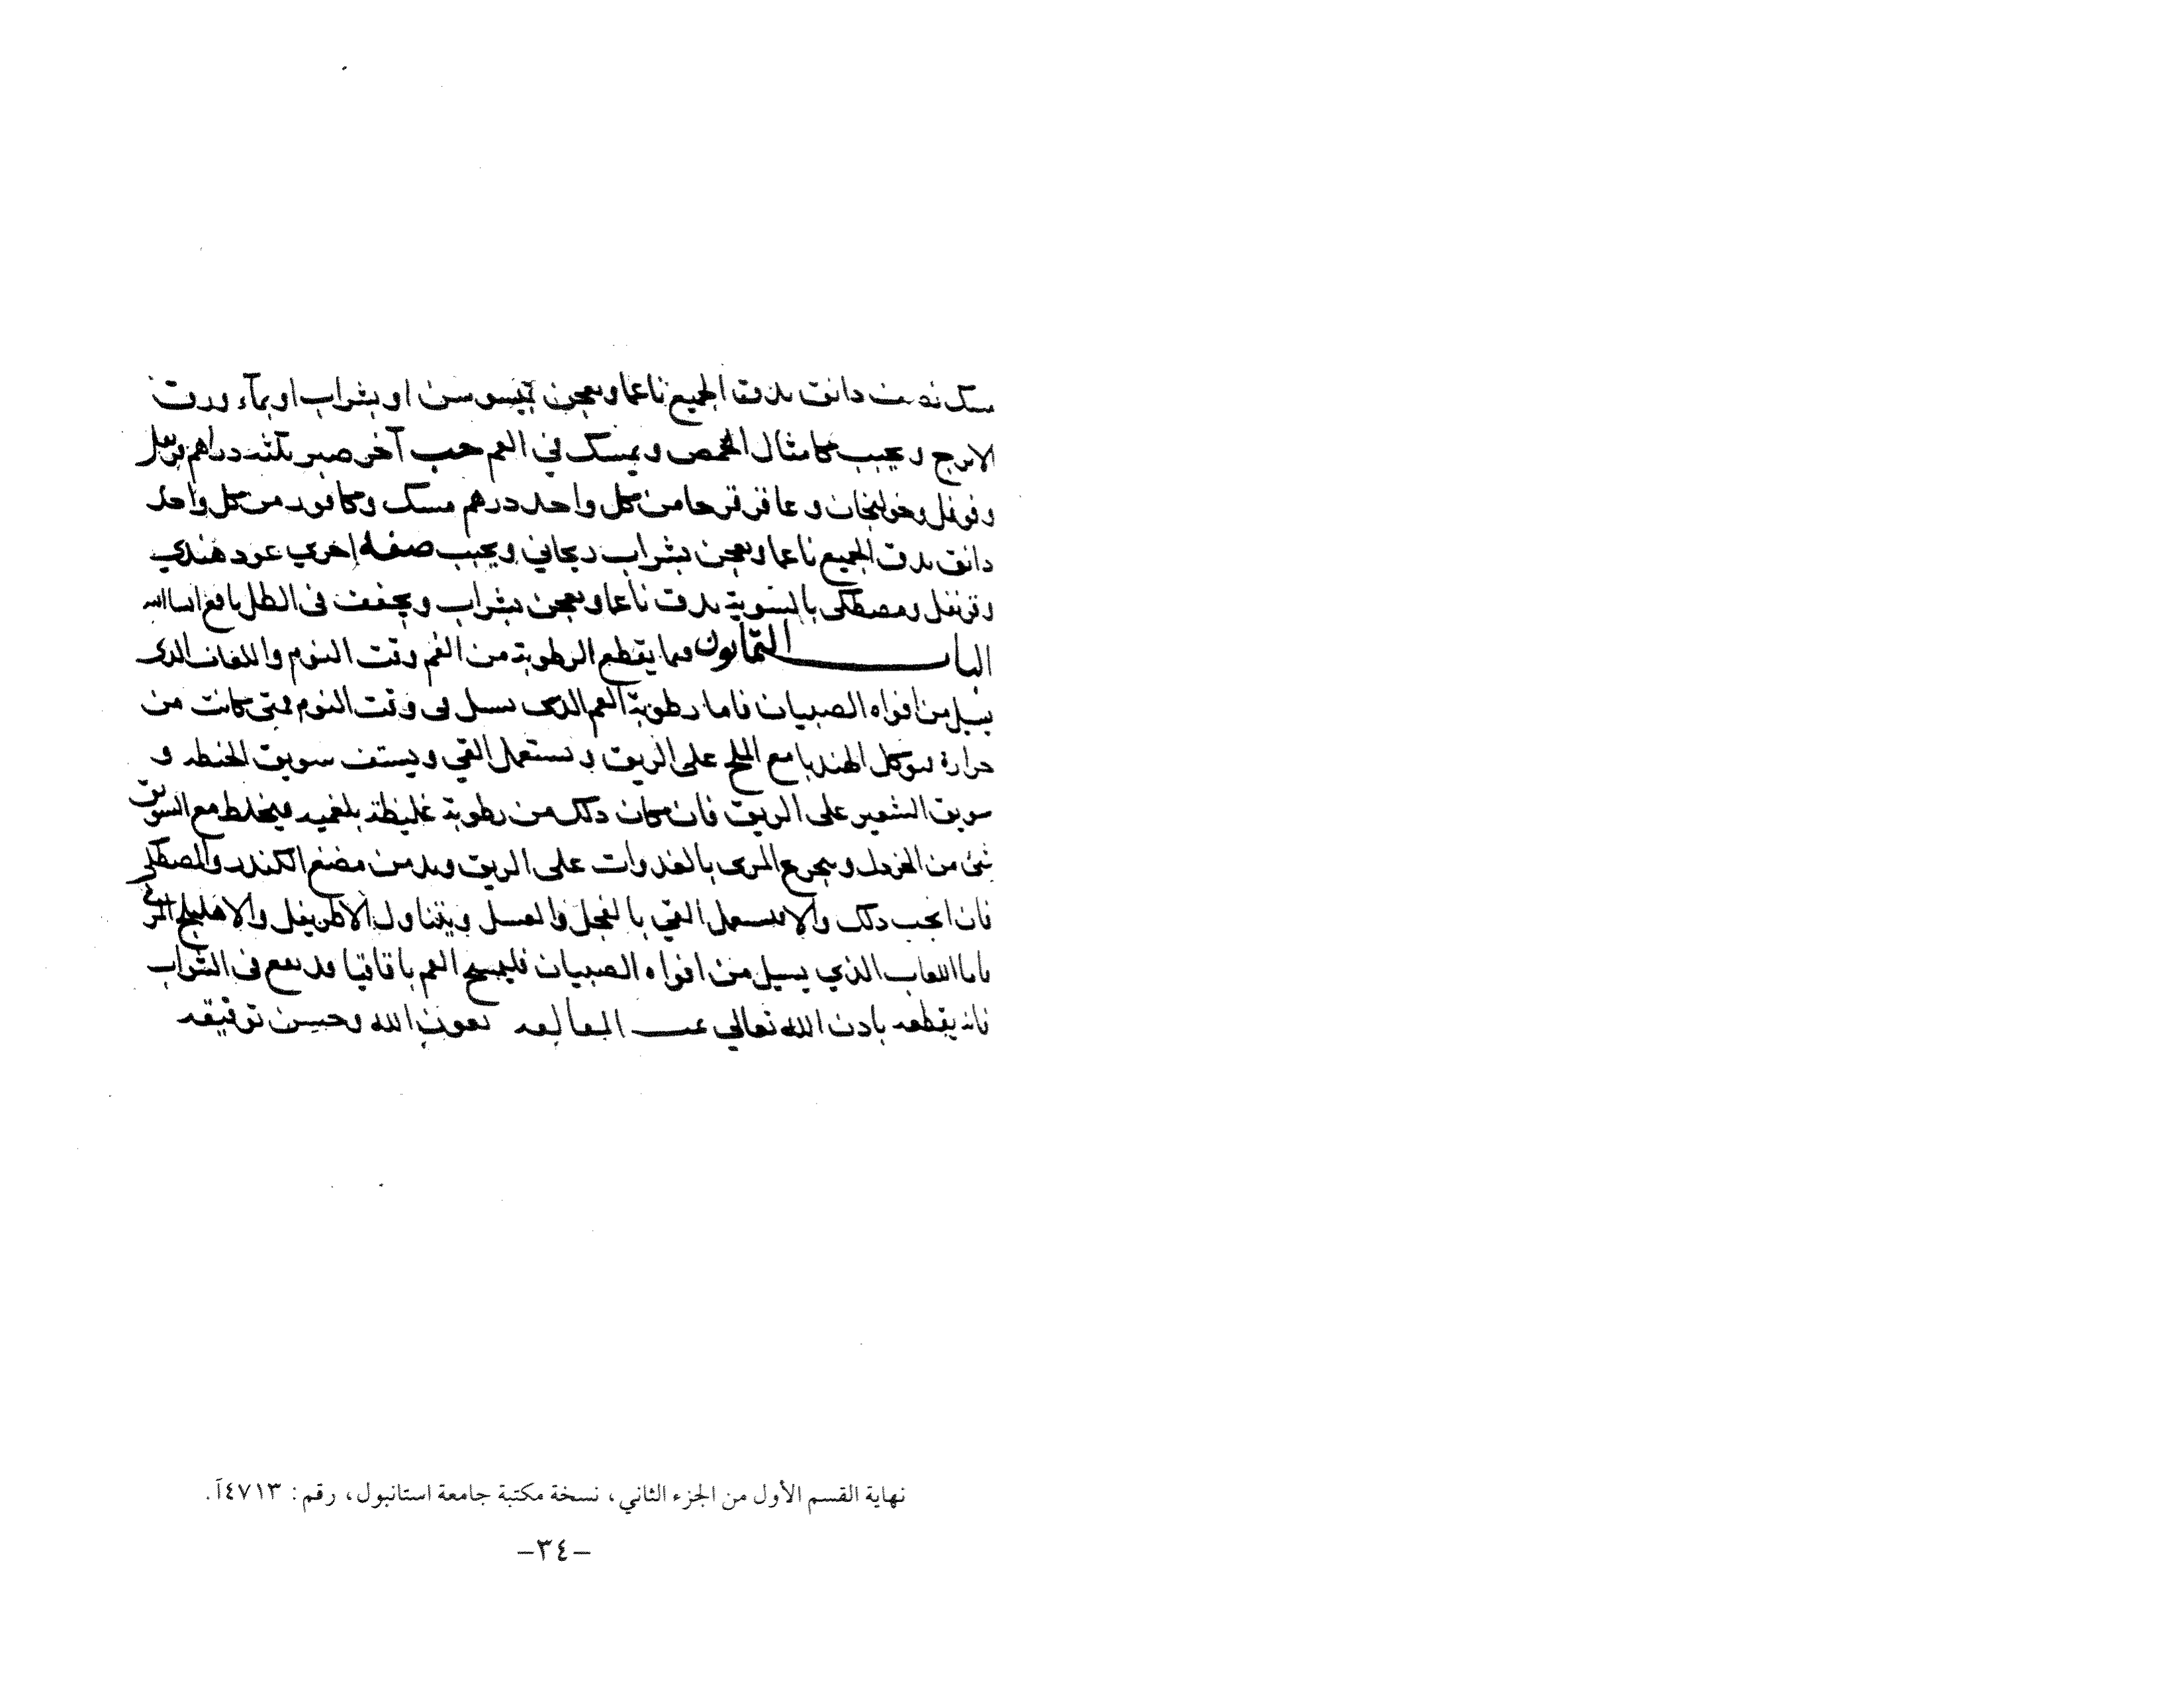 مسك نصف دانق يدق الجميع ناعما ويعجن بميسوسن او بشراب او بماء ورق
الاترج ويحبب كامثال الحمص ويمسك في الفم حب آخر صبر ثلثه دراهم قرنفل
وفوفل وخولنجان وعاقر قرحا من كل واحد درهم مسك وكافور من كل واحد
دانق يدق الجميع ناعما ويعجن بشراب ريحاني ويحبب صفة اخرى عود هندي
وقرنفل ومصطكى بالسوية يدق ناعما ويعجن بشراب ويجفف في الظل نافع ان شا الله
الباب الثمانون فيما يقطع الرطوبة من الفم وقت النوم واللعاب الذي
يسيل من افواه الصبيان فاما رطوبة الفم الذي تسيل في وقت النوم فمتى كانت من
حرارة فيوكل الهندبا مع الملح على الريق ويستعمل القي ويستف سويق الحنطه و
سويق الشعير على الريق فان كان ذلك من رطوبة غليظة بلغميه فيخلط مع السويق
شئ من الخردل ويتجرع المرى بالغدوات على الريق ويدمن مضغ الكندر والمصطكى
فان انجب ذلك والا فيستعمل القي بالفجل والعسل ويتناول الاطريفل والاهليلج المربى
فاما اللعاب الذي يسيل من افواه الصبيان فليمسح الفم باقاقيا قد نقع في الشراب
فانه يقطعه باذن الله تعالى تمت المقالة بعون الله وحسن توفيقه
نهاية القسم الأول من الجزء الثاني، نسخة مكتبة جامعة استانبول، رقم: ٤٧١٣آ.
–٣٤–